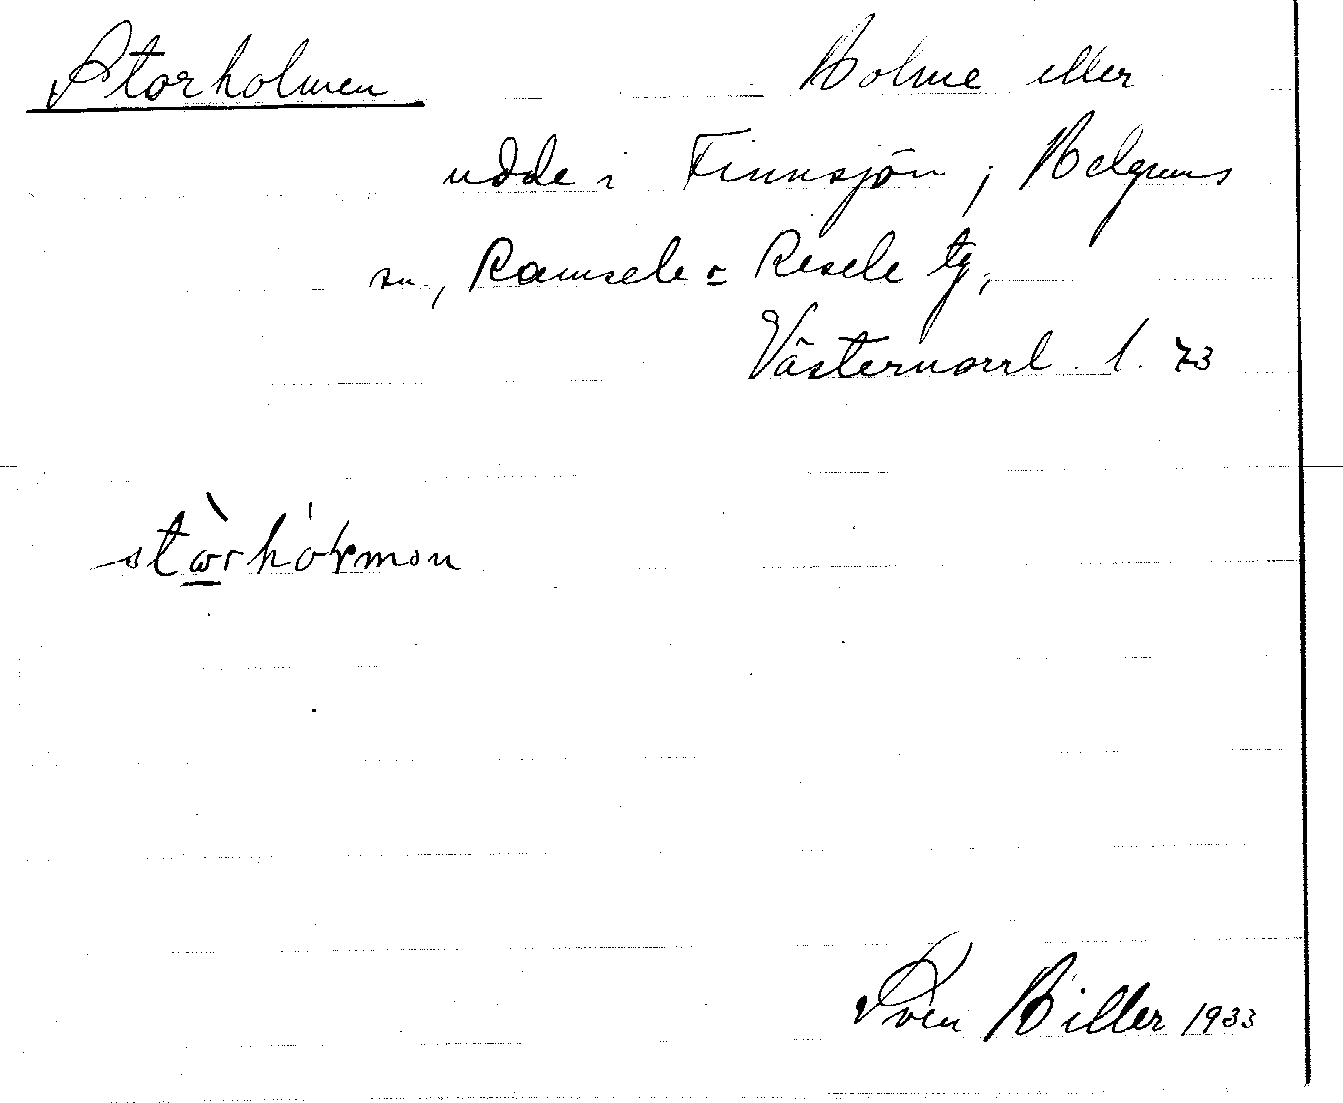 Storholmen Holme eller
udde i Finnsjön, Helgums
sn, Ramsele o Resele tg,
Västernorrl. l. 73
Sven Hiller 1933